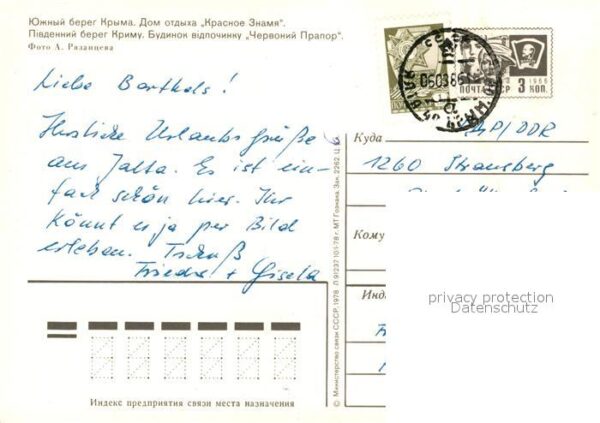 Южный берег Крыма. Дом отдыха „Красное Знамя".
Південний берег Криму. Будинок відпочинку „Червоний Прапор".
Фото А. Рязанцева
Liebe Barthols!
Herzliche Urlaubsgrüße
aus Jalta. Es ist ein-
fach schön hier. Ihr
könnt es ja per Bild
erleben. Tschüß
Frieda + Gisela
ПОЧТА СССР
1966
3 коп.
060386
Куда
ДР/DDR
1260 Strausberg
Кому
Инд
privacy protection
Datenschutz
© Министерство связи СССР, 1978
МТ Гознака. Зак. 2262. Ц.
Индекс предприятия связи места назначения